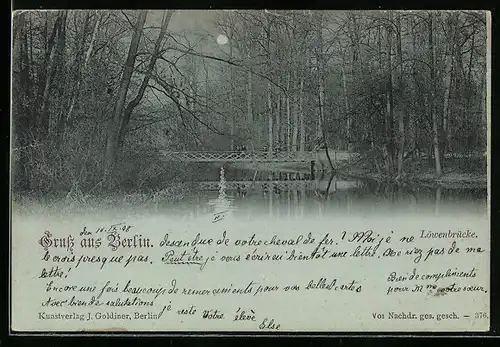 den 10. IX. 98
Gruß aus Berlin.
Löwenbrücke.
descendue de votre cheval de fer? Moi je ne
le crois presque pas. Peut être je vous écrirai bientôt une lettre. Ne riez pas de ma
lettre!
Bien de compliments
pour Mme votre sœur.
Encore une fois beaucoup de remerciements pour vos belles cartes
Avec bien de salutations
je reste Votre élève
Else
Kunstverlag J. Goldiner, Berlin
Vor Nachdr. ges. gesch. — 376.